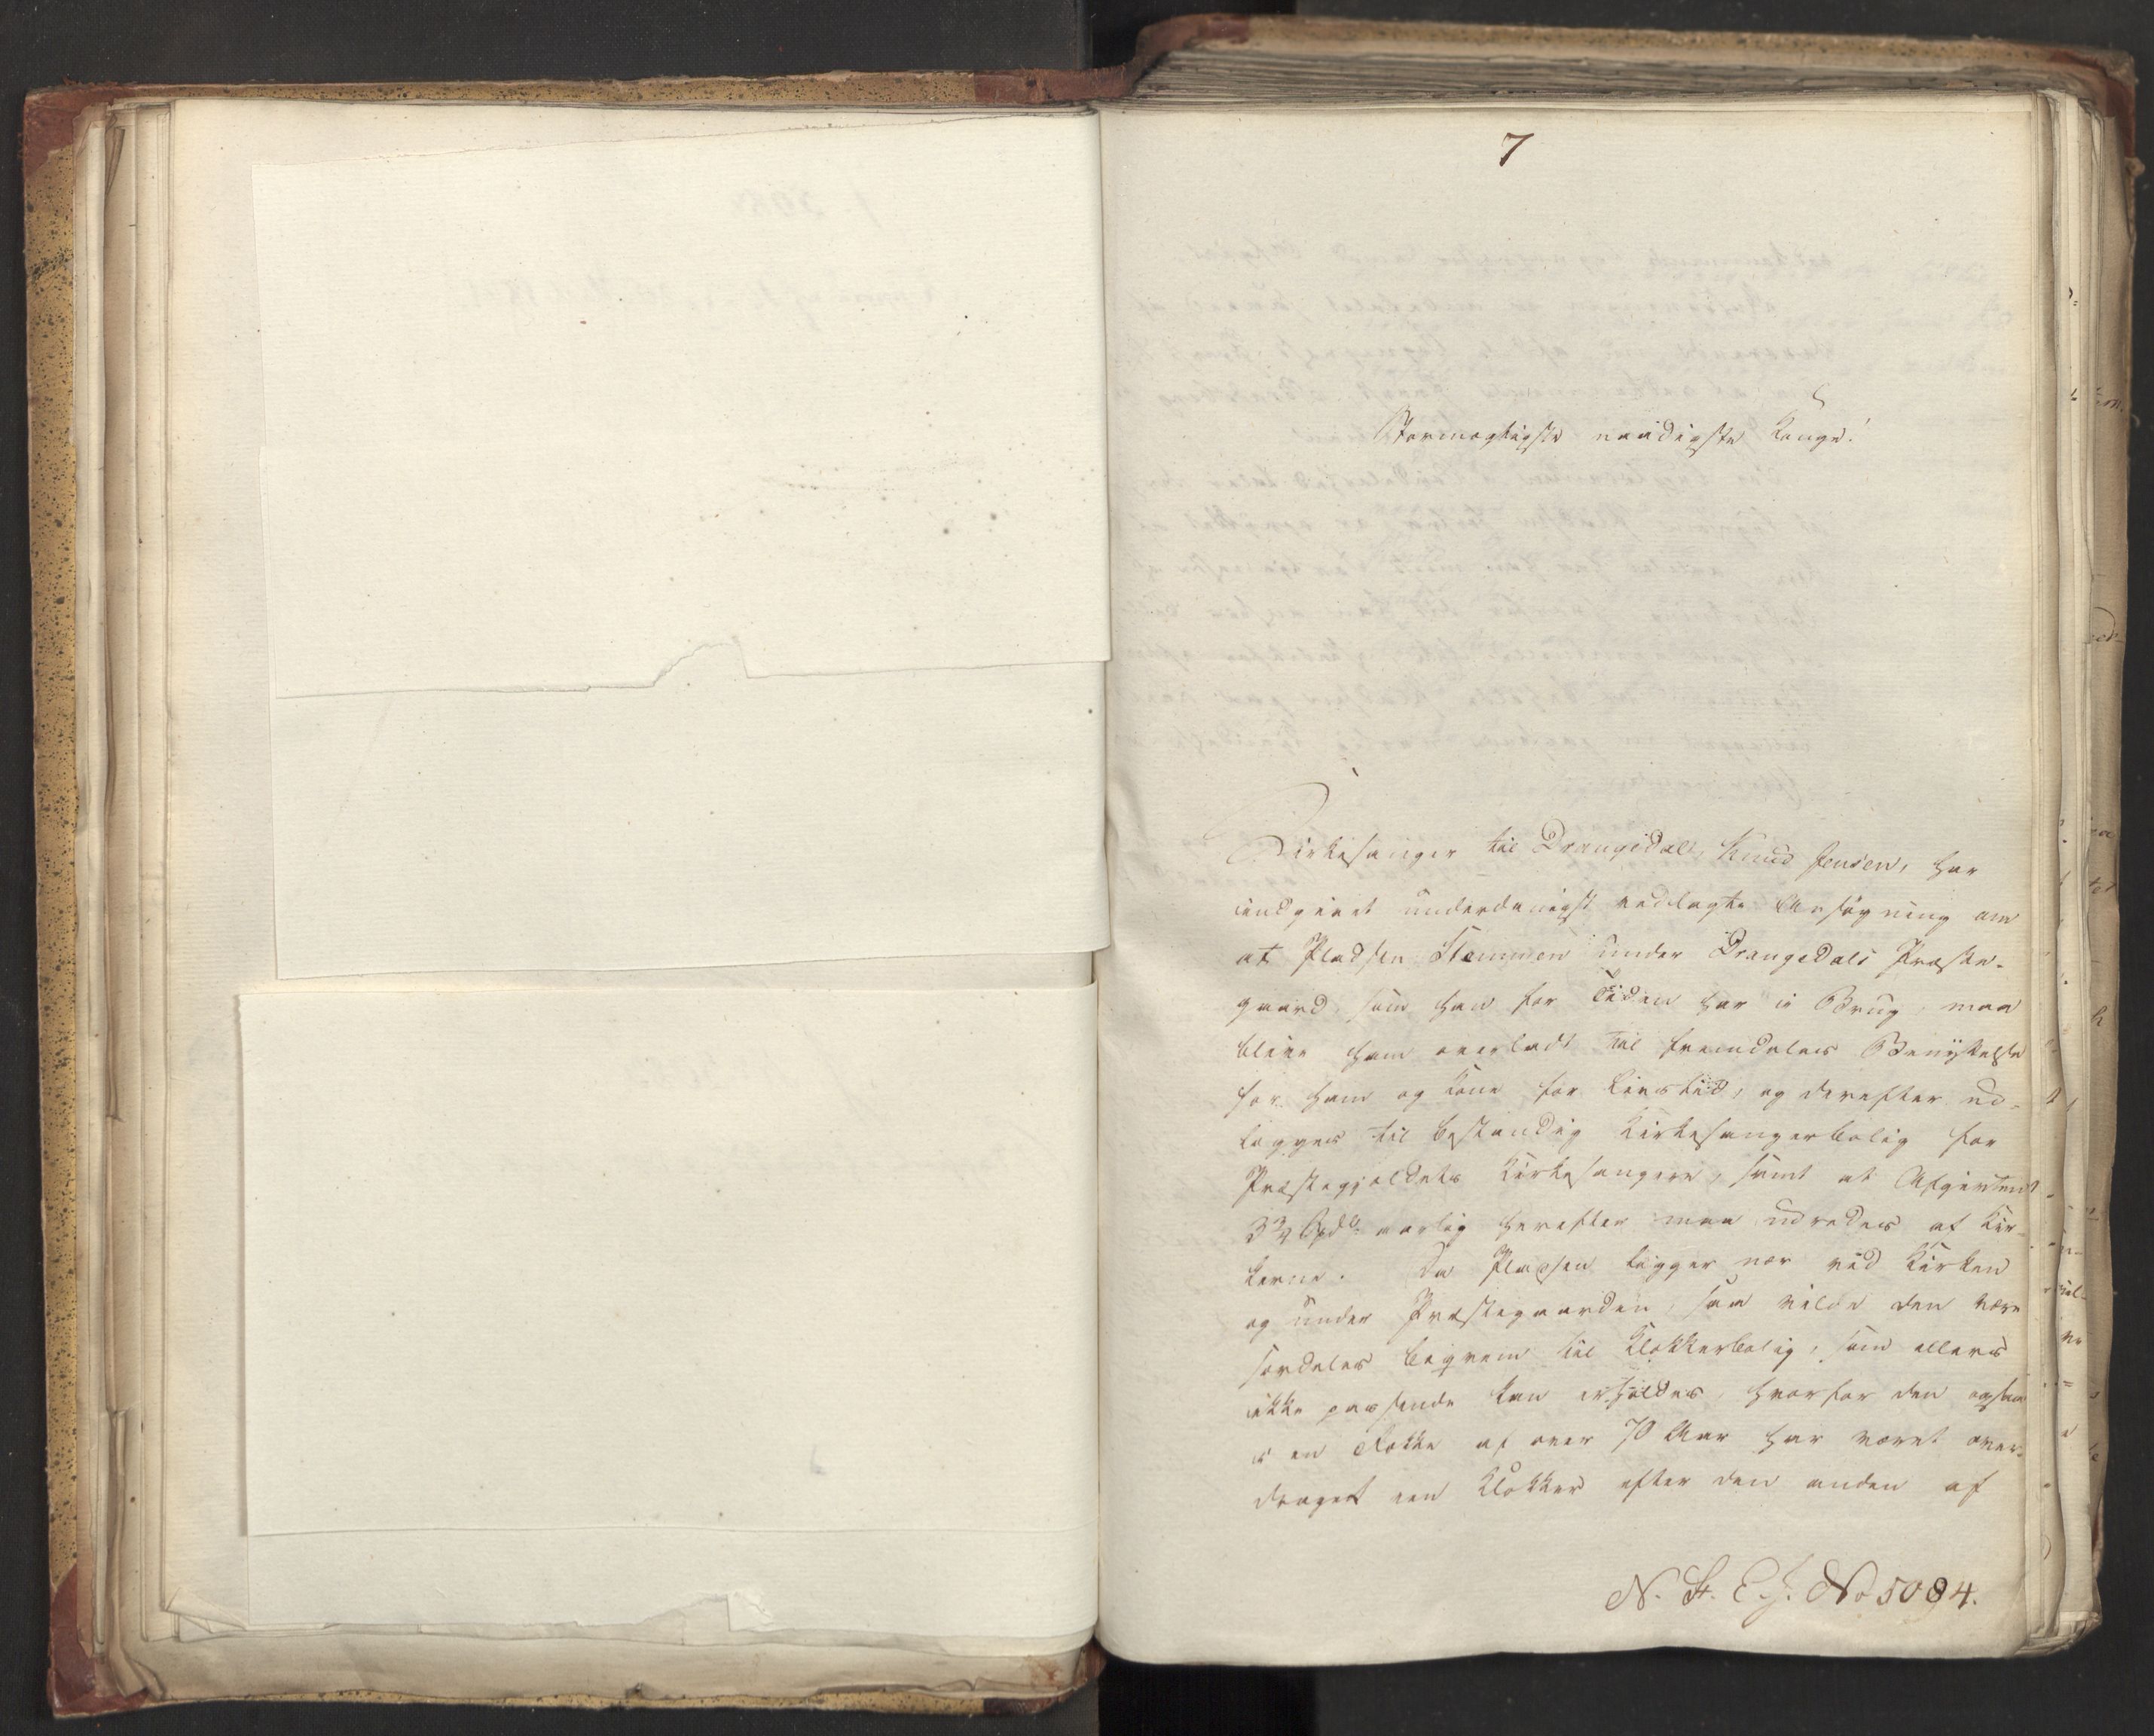 7
Stormægtigste naadigste Konge!
Kirkesanger til Drangedal, Knud Jensen, har
indgivet underdanigst vedlagte Ansøgning om
at Pladsen Stemmen under Drangedals Præste-
gaard, som han for Tiden har i Brug, maa
blive ham overladt til fremdeles Benyttelse
for ham og Kone for Livstid, og derefter ud-
lægges til bestandig Kirkesangerbolig for
Præstegjeldets Kirkesangere, samt at Afgivten
3¾ Spd aarlig herefter maa udredes af Kir-
kerne. Da Pladsen ligger nær ved Kirken
og under Præstegaarden, saa vilde den være
særdeles beqvem til Klokkerbolig, som ellers
ikke passende kan erholdes, hvorfor den ogsaa
i en Række af over 70 Aar har været over-
draget een Klokker efter den anden af
N. St. E. J. No 5094.